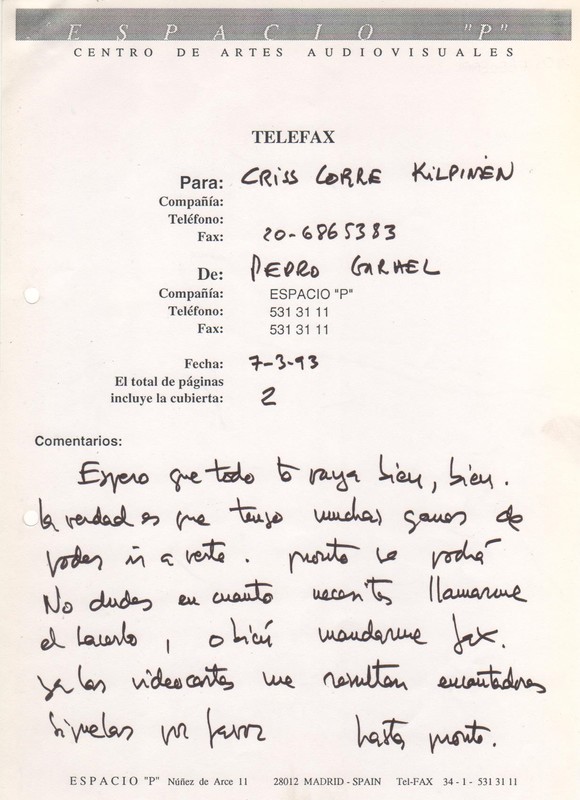 ESPACIO "P"
CENTRO DE ARTES AUDIOVISUALES
TELEFAX
Para: CRISS CORRE KILPINEN
Compañía:
Teléfono:
Fax: 20-6865383
De: PEDRO GARHEL
Compañía: ESPACIO "P"
Teléfono: 531 31 11
Fax: 531 31 11
Fecha: 7-3-93
El total de páginas
incluye la cubierta: 2
Comentarios:
Espero que todo te vaya bien, bien.
La verdad es que tengo muchas ganas de
poder ir a verte. pronto se podrá
No dudes en cuanto necesites llamarme
el hacerlo, o bien mandarme fax.
ya las videocartas me resultan encantadoras
Siguelas por favor hasta pronto.
ESPACIO "P" Núñez de Arce 11 28012 MADRID - SPAIN Tel-FAX 34 - 1 - 531 31 11